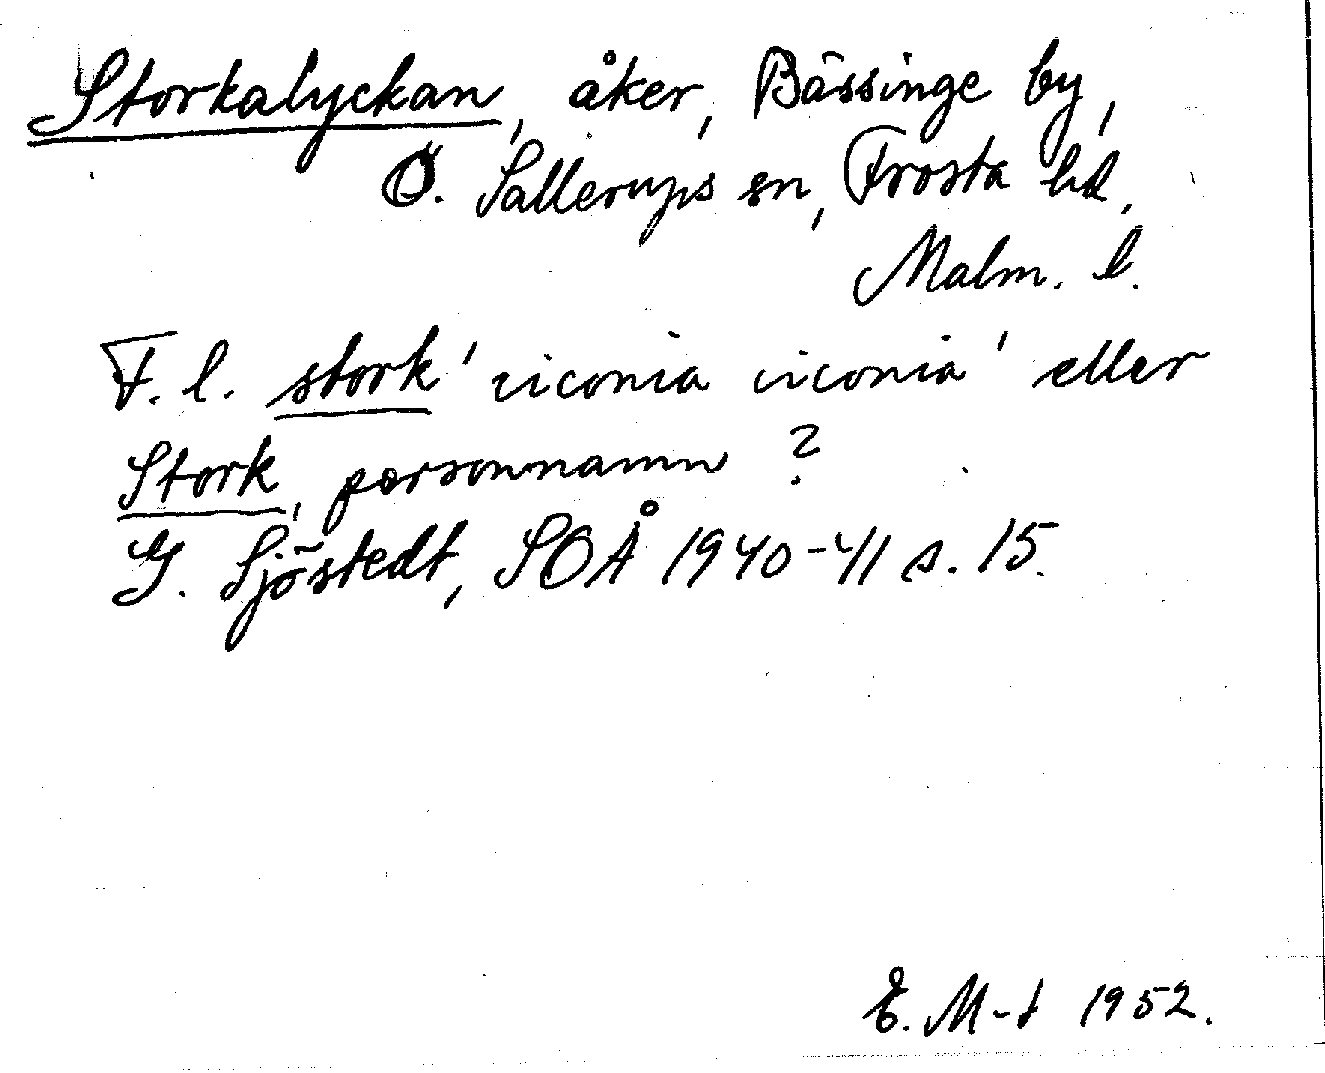 Storkalyckan, åker, Bässinge by,
Ö. Sallerups sn, Frosta hd,
Malm. l.
F. l. stork 'ciconia ciconia' eller
Stork, personnamn ?
G. Sjöstedt, SOÅ 1940-41 s. 15.
E. M-t 1952.